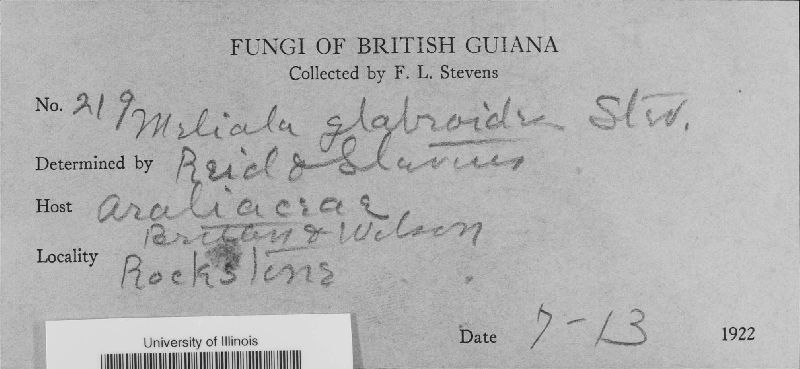 FUNGI OF BRITISH GUIANA
Collected by F. L. Stevens
No. 219 Meliola glabroides Stev.
Determined by Reid & Stevens
Host Araliaceae
Britton & Wilson
Locality Rockstone
Date 7-13 1922
University of Illinois